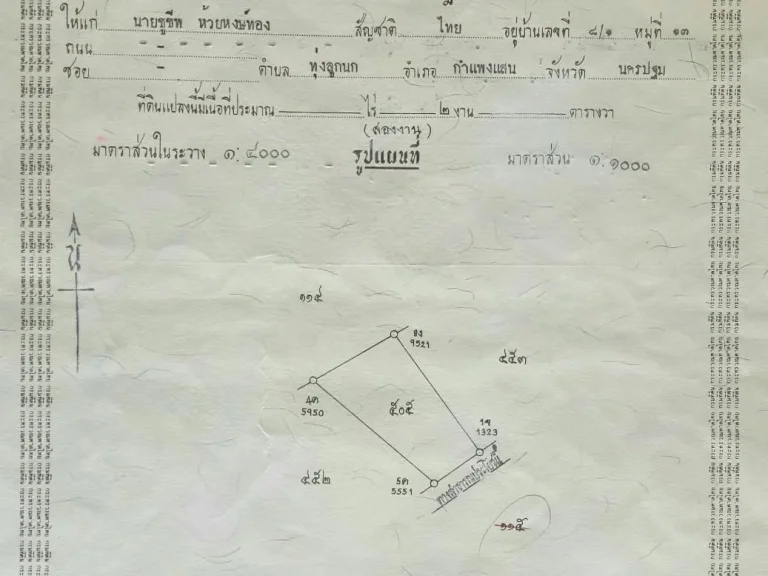 ให้แก่ นายชูชีพ ห้วยหงษ์ทอง สัญชาติ ไทย อยู่บ้านเลขที่ ๘/๑ หมู่ที่ ๑๓
ถนน -
ซอย - ตำบล ทุ่งลูกนก อำเภอ กำแพงแสน จังหวัด นครปฐม
ที่ดินแปลงนี้มีเนื้อที่ประมาณ ไร่ ๒ งาน ตารางวา
(สองงาน)
มาตราส่วนในระวาง ๑:๔๐๐๐ รูปแผนที่ มาตราส่วน ๑:๑๐๐๐
น
๑๑๕
9521
๔๕๓
4ค
5950
๕๐๕
1323
๔๕๒
5ค
5551
ทางสาธารณประโยชน์
๑๑๕